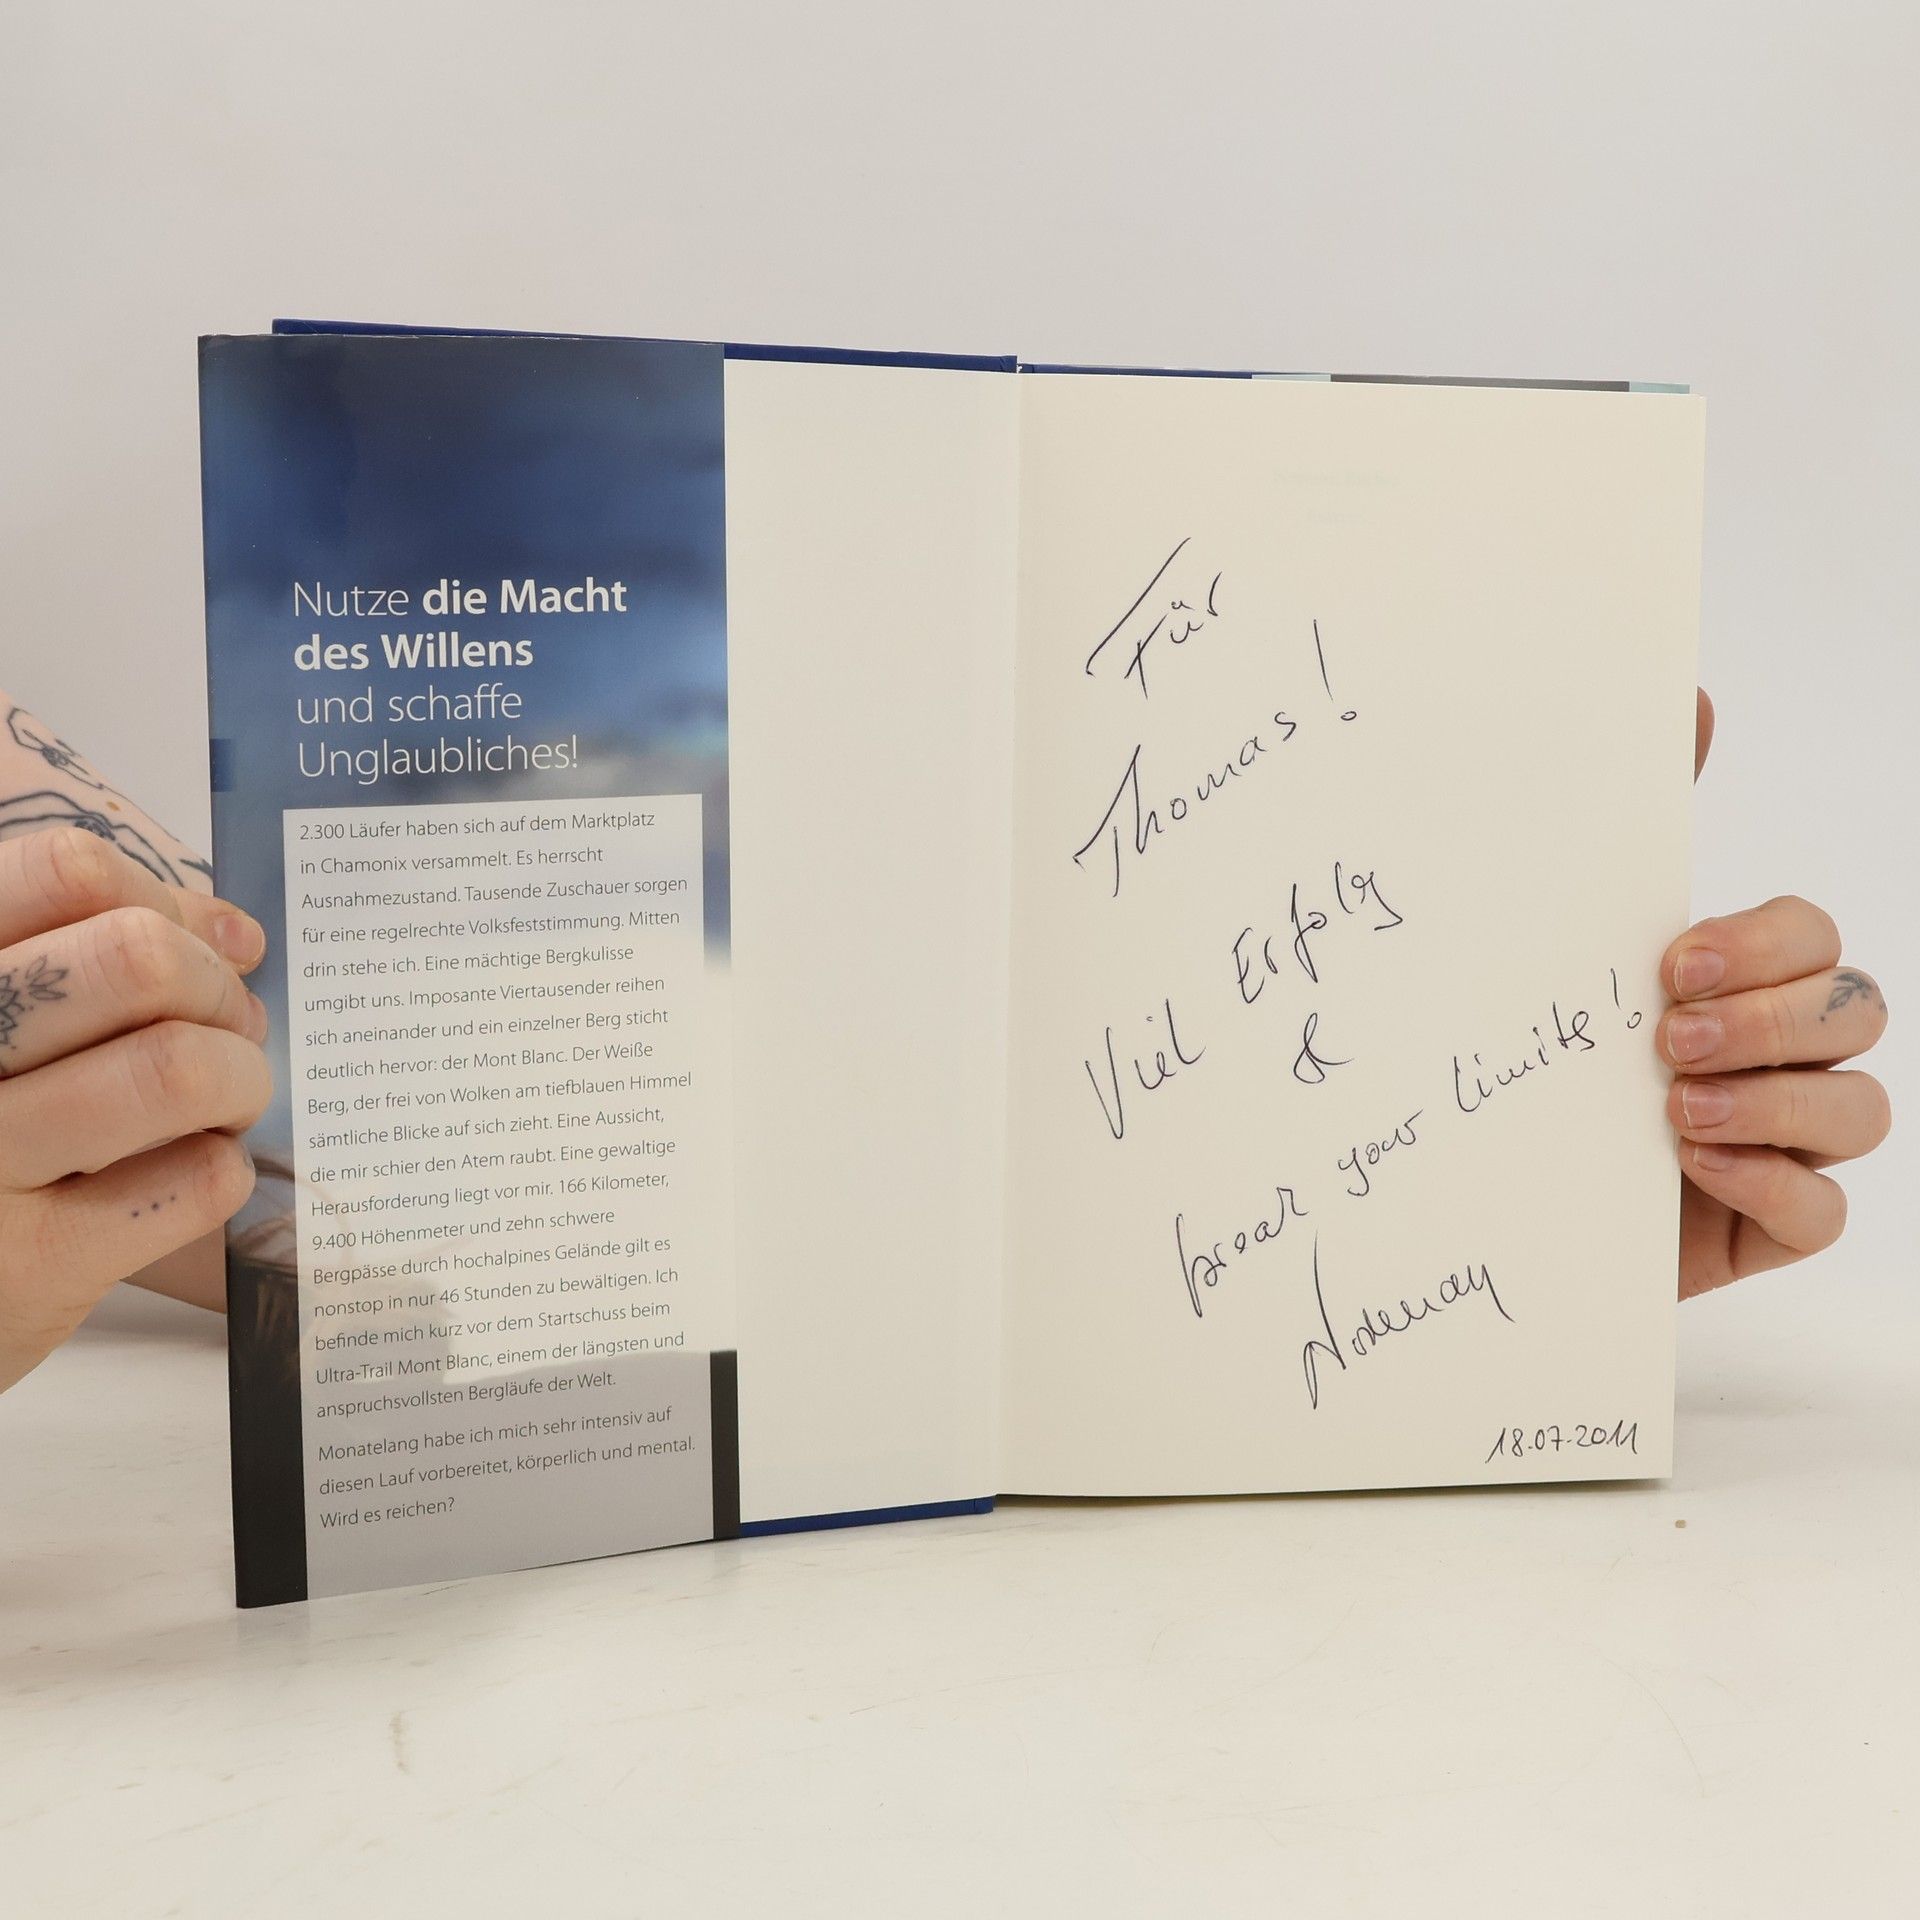 Nutze die Macht
des Willens
und schaffe
Unglaubliches!
2.300 Läufer haben sich auf dem Marktplatz
in Chamonix versammelt. Es herrscht
Ausnahmezustand. Tausende Zuschauer sorgen
für eine regelrechte Volksfeststimmung. Mitten
drin stehe ich. Eine mächtige Bergkulisse
umgibt uns. Imposante Viertausender reihen
sich aneinander und ein einzelner Berg sticht
deutlich hervor: der Mont Blanc. Der Weiße
Berg, der frei von Wolken am tiefblauen Himmel
sämtliche Blicke auf sich zieht. Eine Aussicht,
die mir schier den Atem raubt. Eine gewaltige
Herausforderung liegt vor mir. 166 Kilometer,
9.400 Höhenmeter und zehn schwere
Bergpässe durch hochalpines Gelände gilt es
nonstop in nur 46 Stunden zu bewältigen. Ich
befinde mich kurz vor dem Startschuss beim
Ultra-Trail Mont Blanc, einem der längsten und
anspruchsvollsten Bergläufe der Welt.
Monatelang habe ich mich sehr intensiv auf
diesen Lauf vorbereitet, körperlich und mental.
Wird es reichen?
Für
Thomas!
Viel Erfolg
&
break your limits!
18.07.2011